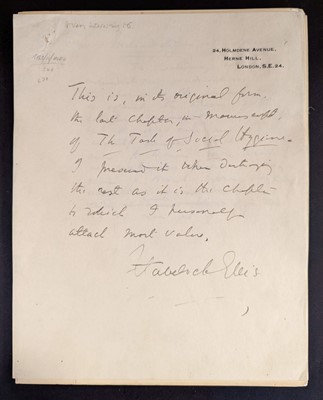 24, HOLMDENE AVENUE,
HERNE HILL,
LONDON, S.E. 24.
This is, in its original form,
the last chapter, in manuscript,
of The Task of Social Hygiene.
I preserved it when destroying
the rest as it is the chapter
to which I personally
attach most value.
Havelock Ellis